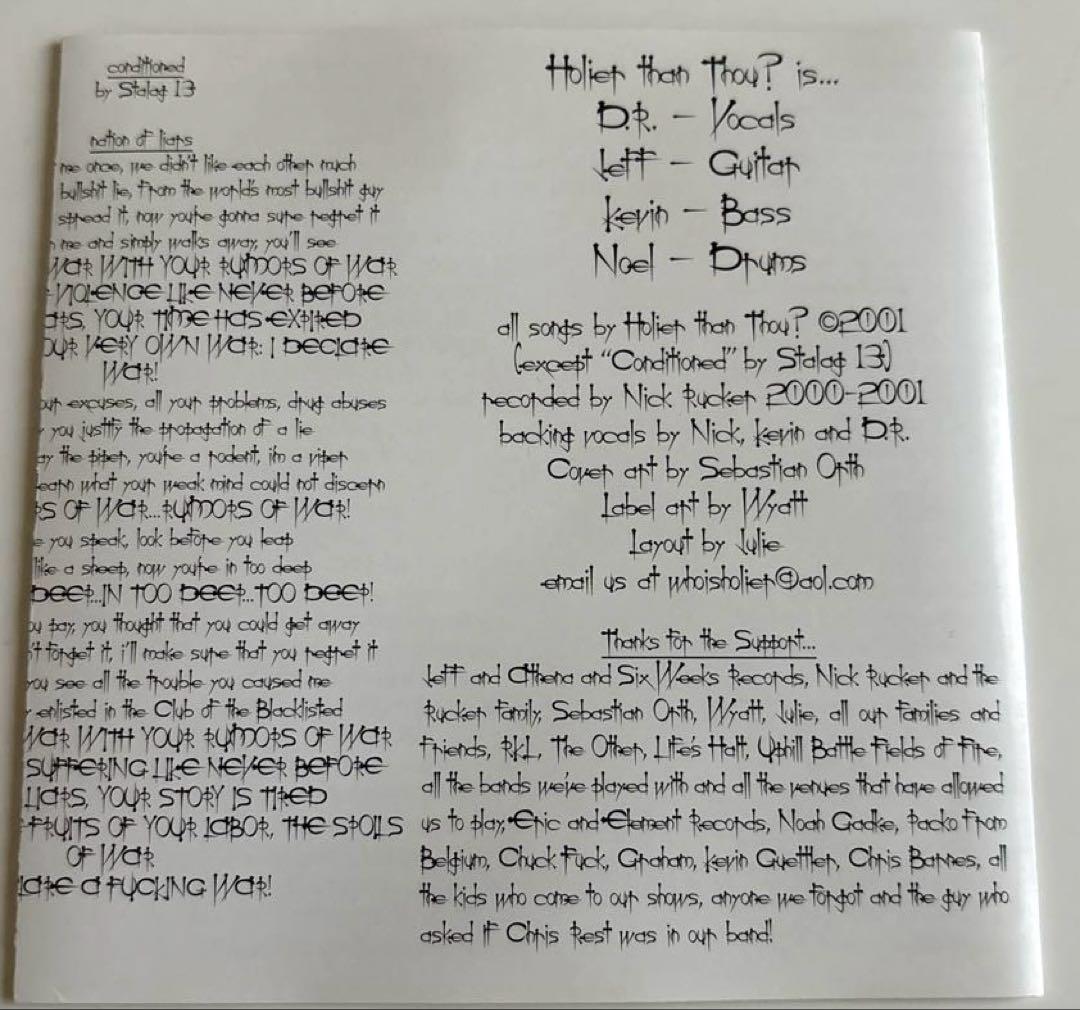 conditioned
by Stalag 13
nation of liars
me once, we didn't like each other much
bullshit lie, from the world's most bullshit guy
spread it, now you're gonna sure regret it
me and simply walks away, you'll see
WAR WITH YOUR RUMORS OF WAR
VIOLENCE LIKE NEVER BEFORE
YOUR TIME HAS EXPIRED
VERY OWN WAR: I DECLARE
WAR!
excuses, all your problems, drug abuses
you justify the propagation of a lie
the piper, you're a rodent, i'm a viper
what your weak mind could not discern
OF WAR...RUMORS OF WAR!
you speak, look before you leap
like a sheep, now you're in too deep
DEEP...IN TOO DEEP...TOO DEEP!
pay, you thought that you could get away
forget it, i'll make sure that you regret it
you see all the trouble you caused me
enlisted in the Club of the Blacklisted
WAR WITH YOUR RUMORS OF WAR
SUFFERING LIKE NEVER BEFORE
LIARS, YOUR STORY IS TIRED
FRUITS OF YOUR LABOR, THE SPOILS
OF WAR
A FUCKING WAR!
Holier than Thou? is...
D.R. - Vocals
Jeff - Guitar
Kevin - Bass
Noel - Drums
all songs by Holier than Thou? ©2001
(except "Conditioned" by Stalag 13)
recorded by Nick Rucker 2000-2001
backing vocals by Nick, Kevin and D.R.
Cover art by Sebastian Orth
Label art by Wyatt
Layout by Julie
email us at whoisholier@aol.com
Thanks for the Support...
Jeff and Athena and Six Weeks Records, Nick Rucker and the
Rucker family, Sebastian Orth, Wyatt, Julie, all our families and
friends, RKL, The Other, Life's Halt, Uphill Battle Fields of Fire,
all the bands we've played with and all the venues that have allowed
us to play, Eric and Element Records, Noah Gadke, Packo from
Belgium, Chuck Fuck, Graham, Kevin Guettler, Chris Barnes, all
the kids who come to our shows, anyone we forgot and the guy who
asked if Chris Rest was in our band!